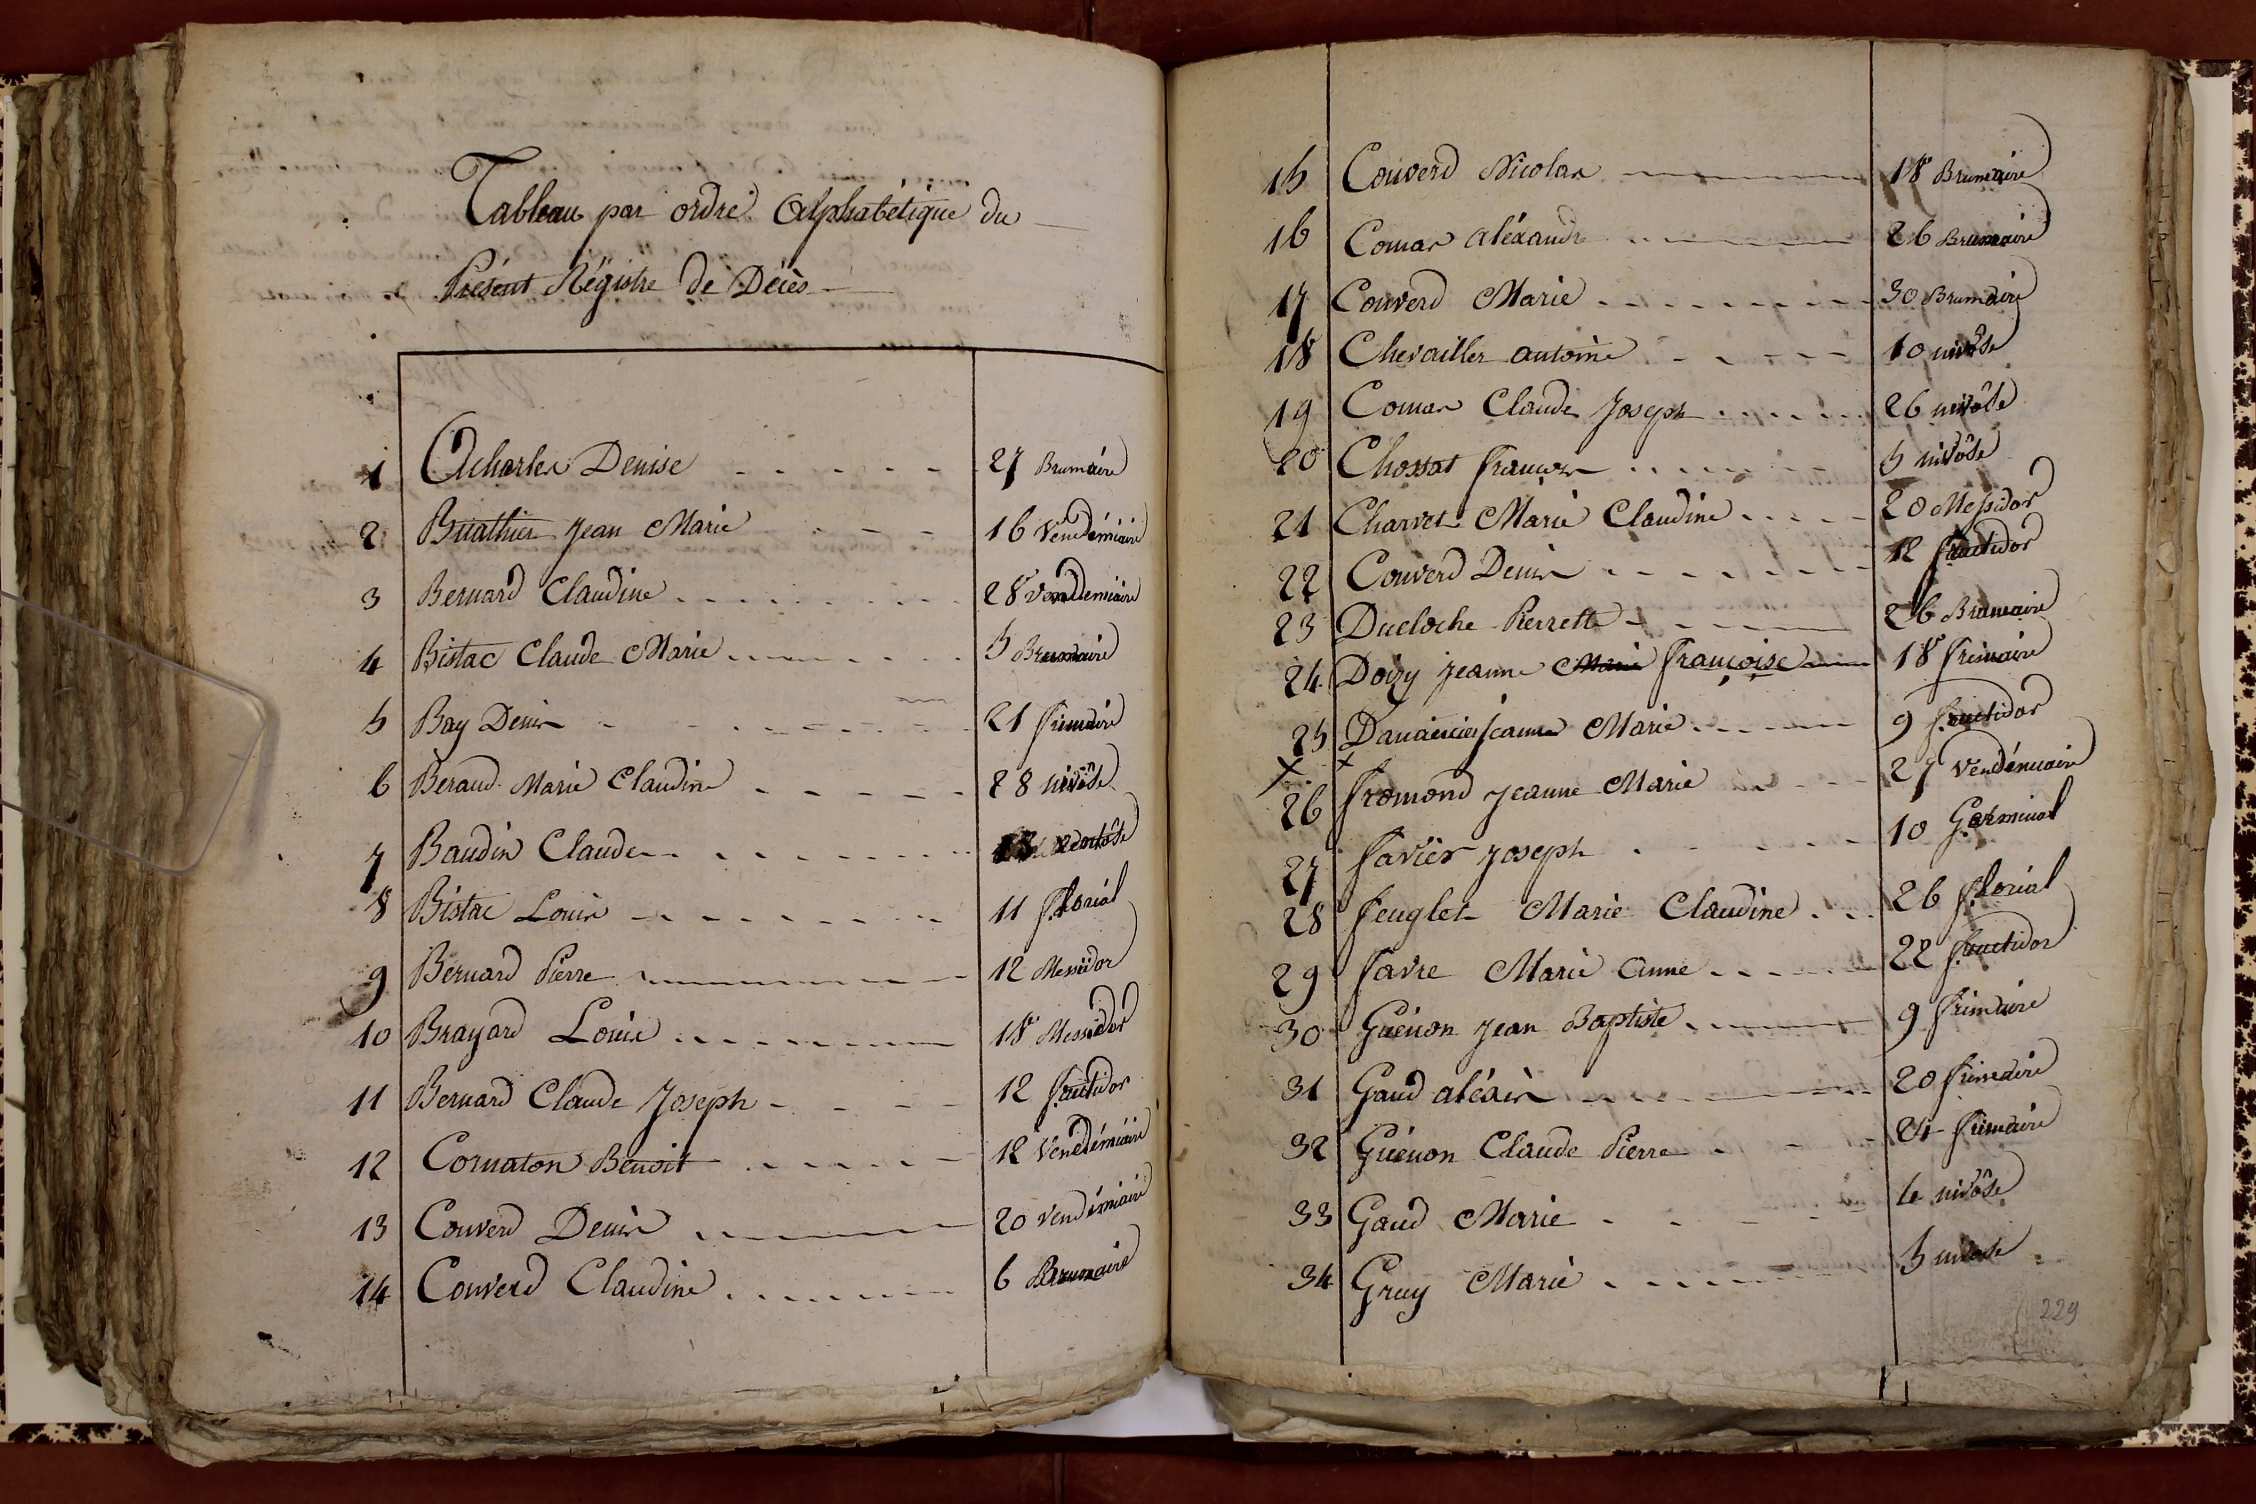 Tableau par ordre Alphabétique du
Présent Régistre de Décès
1 Acharles Denise 27 Brumaire
2 Buathier Jean Marie 16 Vendémiaire
3 Bernard Claudine 28 Vendemiaire
4 Bistac Claude Marie 5 Brumaire
5 Bay Denis 21 frimaire
6 Beraud Marie Claudine 28 nivôse
7 Baudin Claude ventôse
8 Bistac Louis 11 floréal
9 Bernard Pierre 12 Messidor
10 Brayard Louis 18 Messidor
11 Bernard Claude Joseph 12 fructidor
12 Cornaton Benoit 12 Vendémiaire
13 Converd Denis 20 Vendémiaire
14 Converd Claudine 6 Brumaire
15 Converd Nicolas 18 Brumaire
16 Comas aléxandre 26 Brumaire
17 Converd Marie 30 Brumaire
18 Chevailler antoine 10 nivôse
19 Comas Claude Joseph 26 nivôse
20 Chossat françois 5 nivôse
21 Charvet Marie Claudine 20 Messidor
22 Converd Denis 12 fructidor
23 Ducloche Pierrette 26 Brumaire
24 Doizy Jeanne Marie françoise 18 frimaire
25 Jeanne Marie 9 fructidor
26 fromond Jeanne Marie 27 Vendémiaire
27 favier Joseph 10 Germinal
28 feuglet Marie Claudine 26 floréal
29 favre Marie anne 22 fructidor
30 Guénon Jean Baptiste 9 frimaire
31 Gaud aléxis 20 frimaire
32 Guénon Claude Pierre 24 frimaire
33 Gaud Marie le nivôse
34 Gruy Marie 5 nivose
229